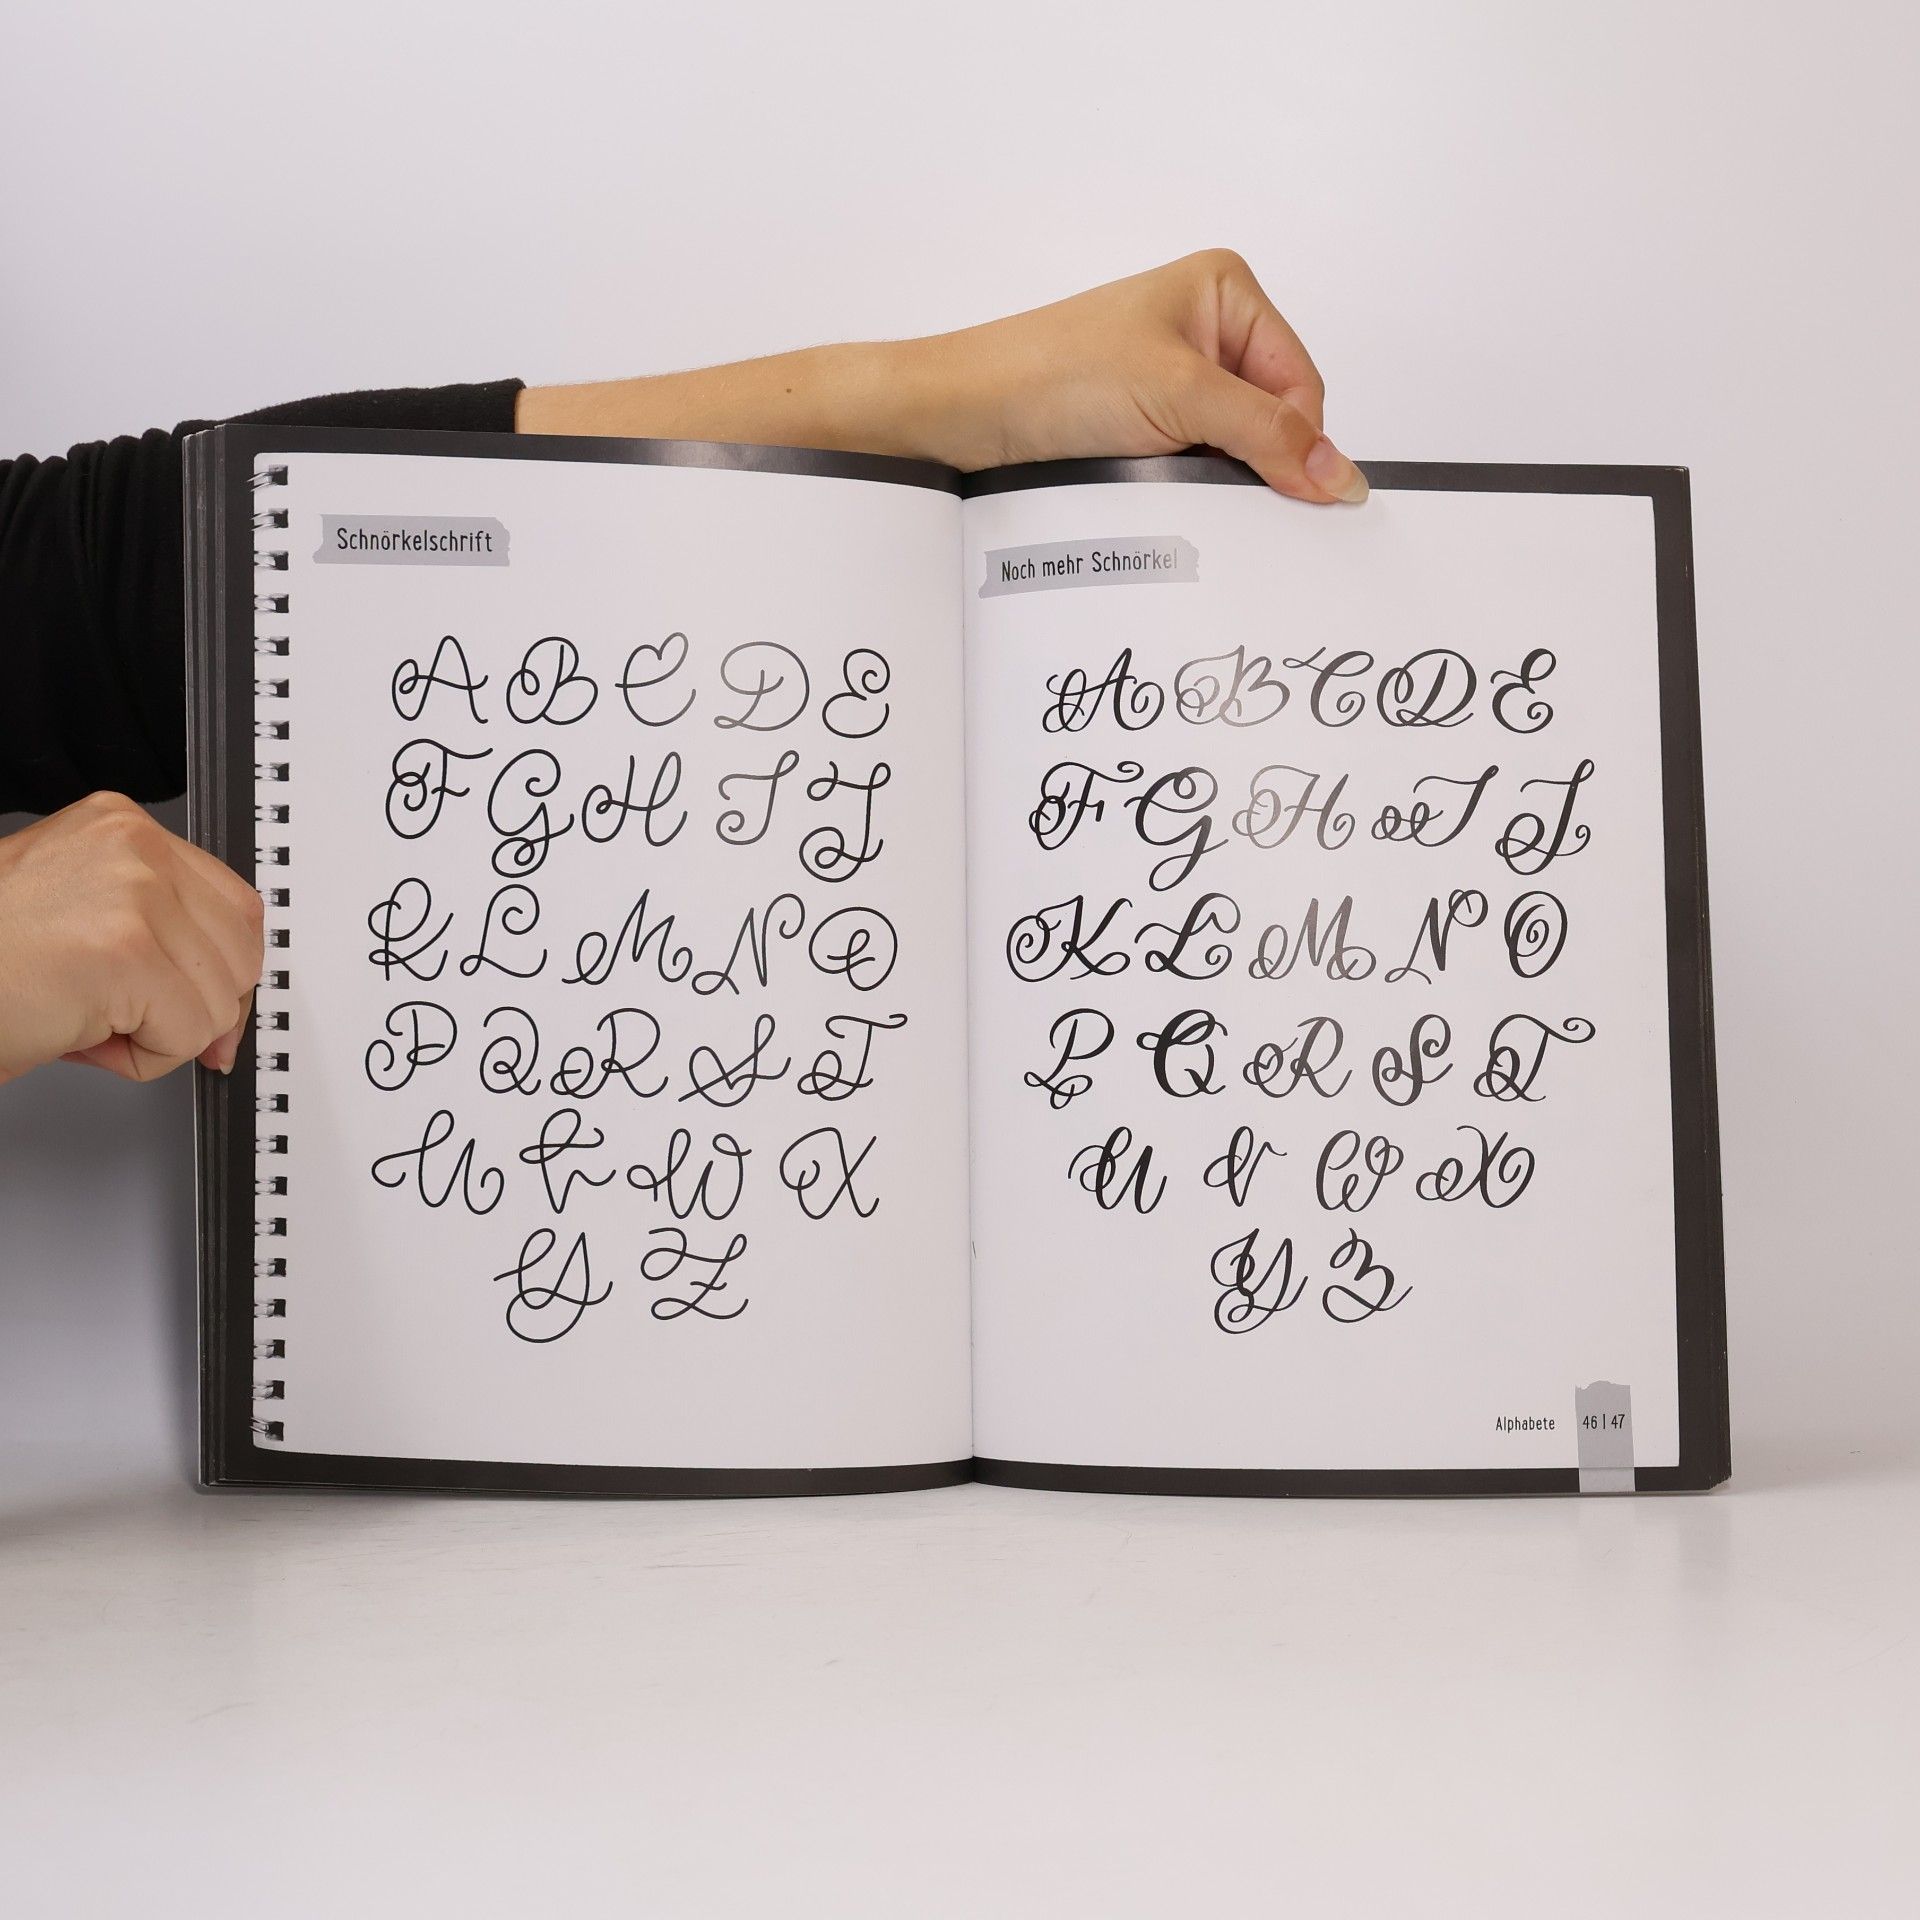 Schnörkelschrift
A B C D E
F G H I J
K L M N O
P Q R S T
U V W X
Y Z
Noch mehr Schnörkel
A B C D E
F G H I J
K L M N O
P Q R S T
U V W X
Y Z
Alphabete 46 | 47